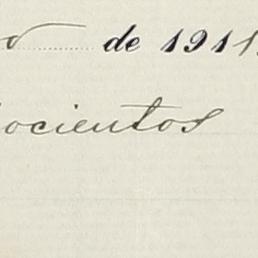 o de 1911
ocientos